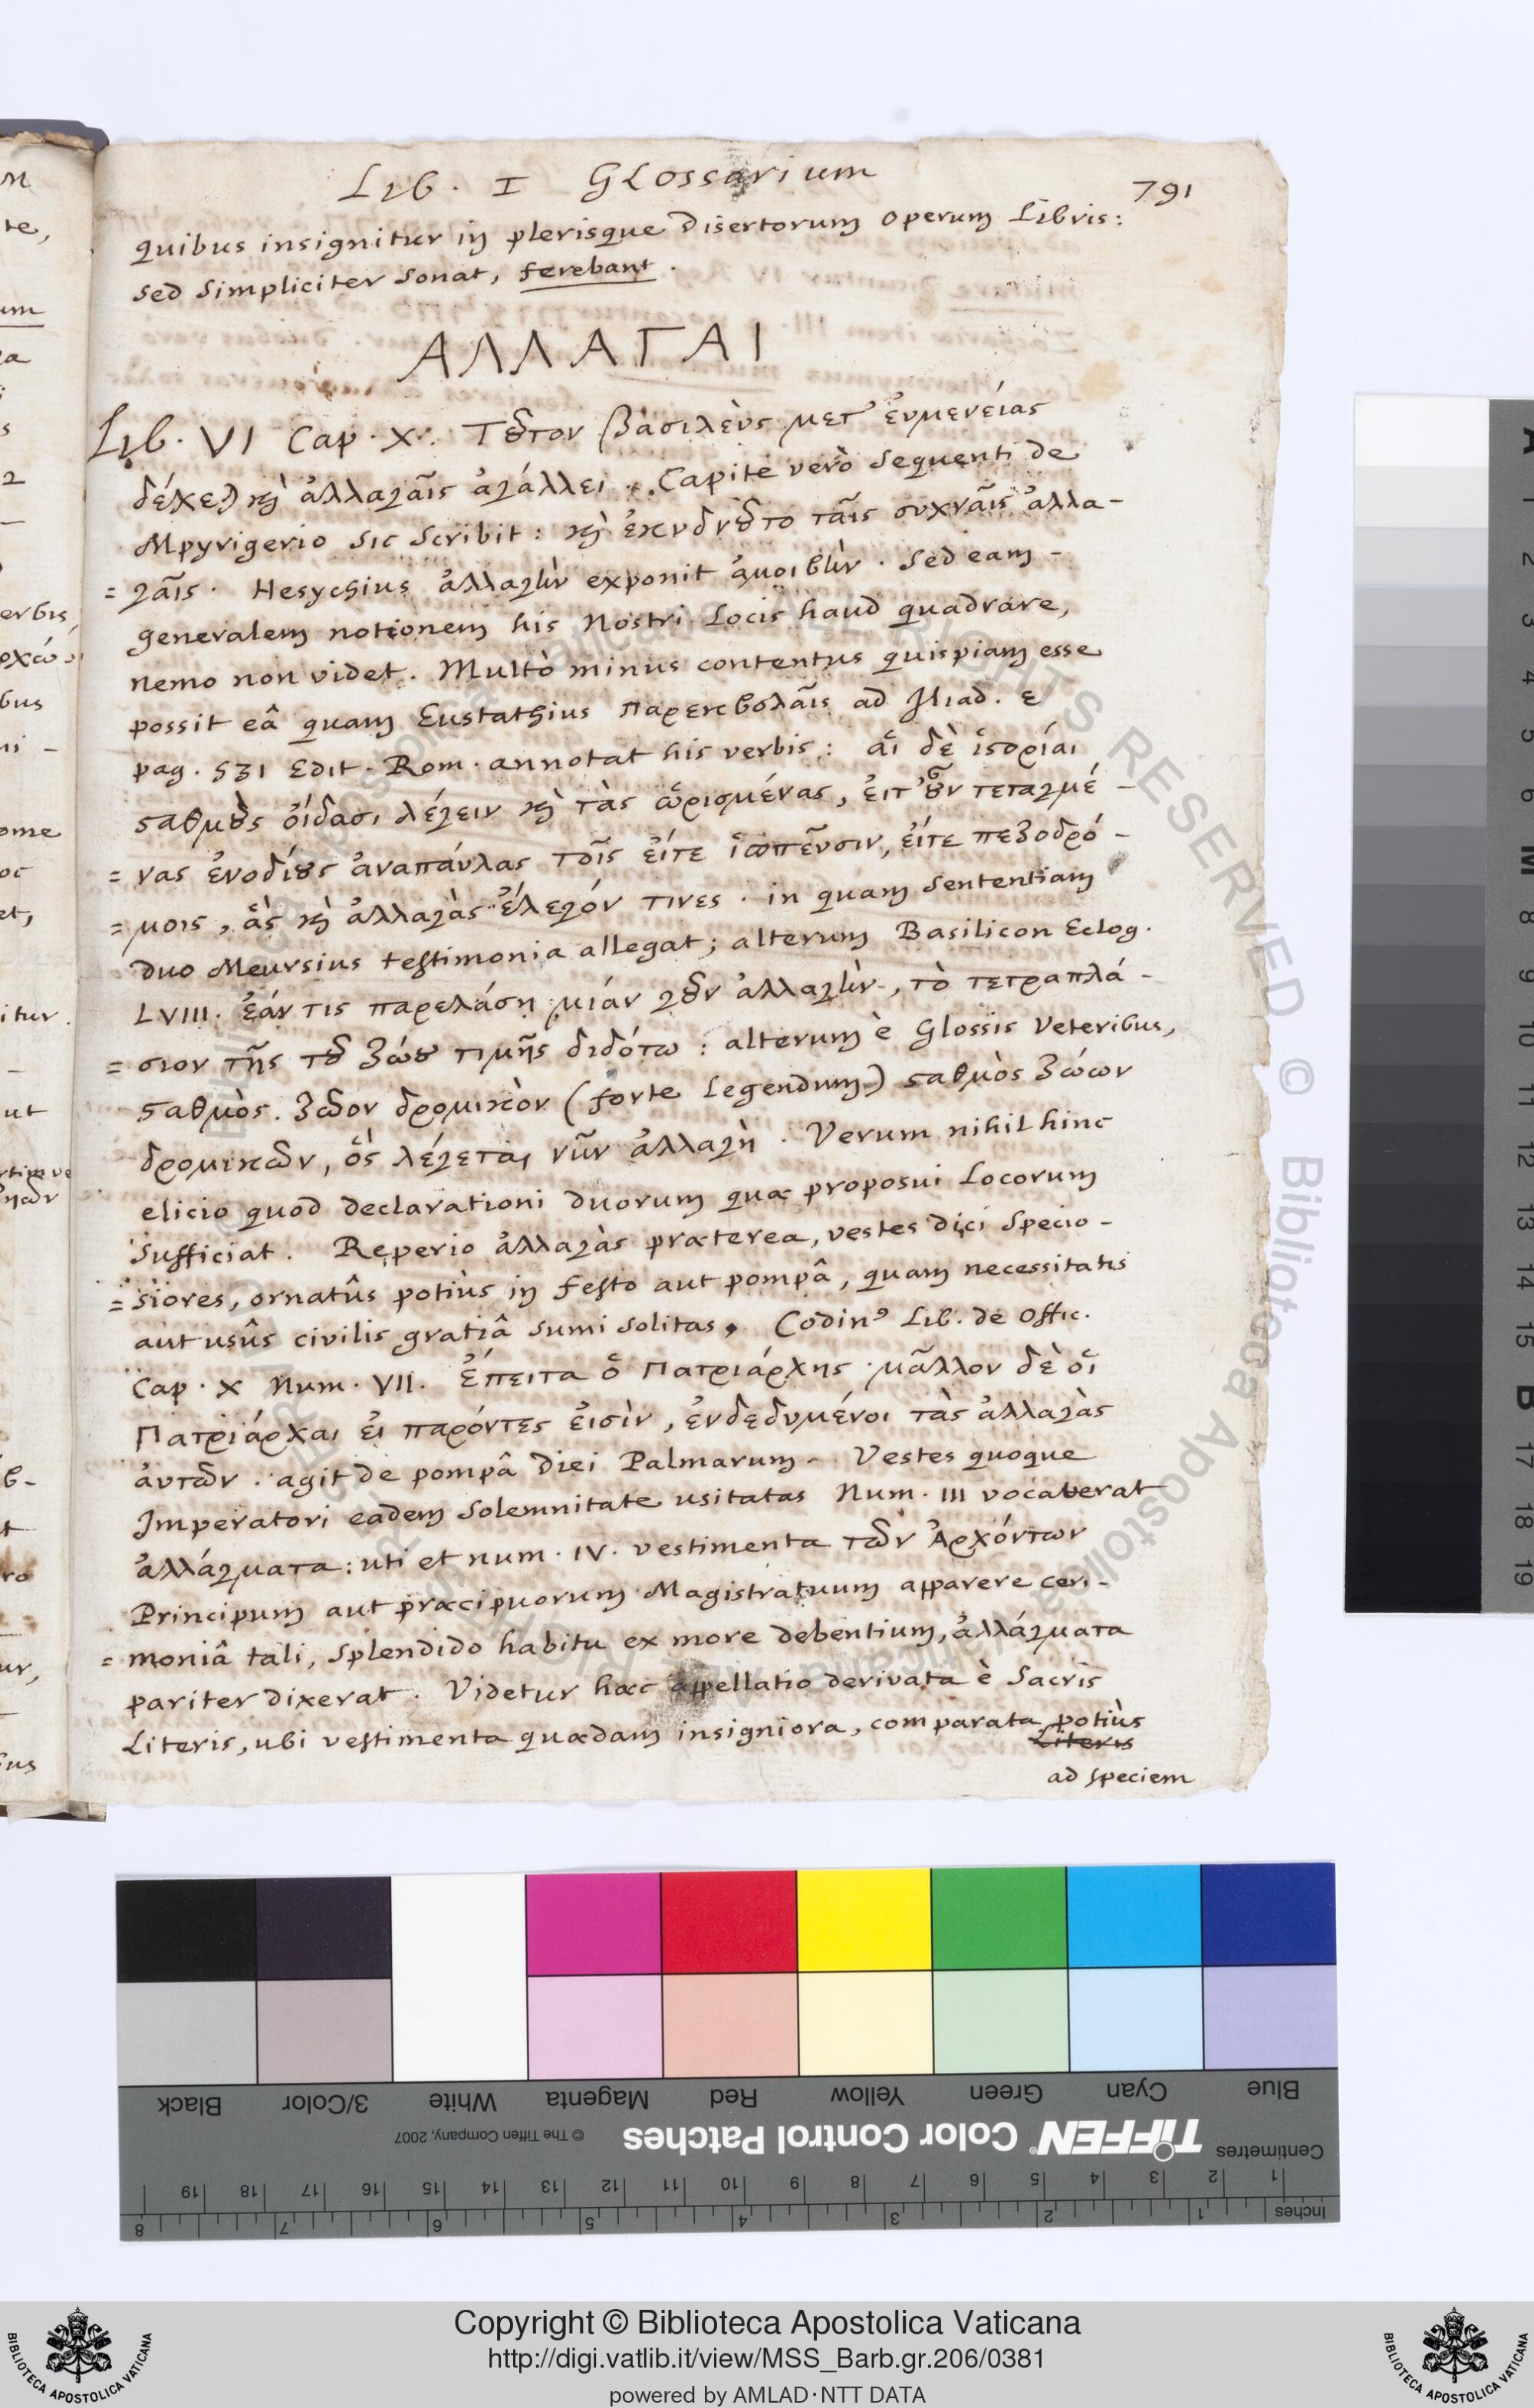 Lib. I Glossarium
791
quibus insignitur in plerisque disertorum operum Libris:
sed simpliciter sonat, ferebant.
ΑΛΛΑΓΑΙ
Lib. VI Cap. X. Τȣ͂τον βασιλεὺς μετ' ἐυμενείας
δέχεται καὶ ἀλλαγαῖς ἀγάλλει. Capite verò sequenti de
Mpyrigerio sic scribit: καὶ ἐκυδνȣ͂το ταῖς συχναῖς ἀλλα-
= γαῖς. Hesychius ἀλλαγὴν exponit ἀμοιβὴν. Sed eam
generalem notionem his Nostri Locis haud quadrare,
nemo non videt. Multò minus contentus quispiam esse
possit eâ quam Eustathius παρεκβολαῖς ad Iliad. ε
pag. 531 Edit. Rom. annotat his verbis: αἱ δὲ ἱϛορίαι
ϛαθμȣ̀ς ὀίδασι λέγειν καὶ τὰς ὡρισμένας, ἐιτ' ȣ͂ν τεταγμέ-
= νας ἐνοδίȣς ἀναπάυλας τοῖς ἐίτε ἱππεῦσιν, ἐίτε πεζοδρό-
= μοις, ἃς καὶ ἀλλαγὰς ἔλεγόν τινες. in quam sententiam
duo Meursius testimonia allegat; alterum Basilicon Eclog.
LVIII. ἐάν τις παρελάση μιάν γȣ͂ν ἀλλαγὴν, τὸ τετραπλά-
= σιον τῆς τȣ͂ ζώȣ τιμῆς διδότω: alterum è Glossis Veteribus,
ϛαθμὸς. ζῶον δρομικὸν (forte Legendum) ϛαθμὸς ζώων
δρομικῶν, ὃς λέγεται νῦν ἀλλαγὴ. Verum nihil hinc
elicio quod declarationi duorum quæ proposui Locorum
sufficiat. Reperio ἀλλαγὰς præterea, vestes dici specio-
= siores, ornatûs potiùs in festo aut pompâ, quam necessitatis
aut usûs civilis gratiâ sumi solitas. Codin⁹ Lib. de Offic.
Cap. X Num. VII. Ἔπειτα ὁ Πατριάρχης μᾶλλον δὲ οἱ
Πατριάρχαι ἐι παρόντες ἐισὶν, ἐνδεδυμένοι τὰς ἀλλαγὰς
ἀυτῶν. agit de pompâ diei Palmarum. Vestes quoque
Imperatori eadem solemnitate usitatas Num. III vocaverat
ἀλλάγματα: uti et num. IV. vestimenta τῶν Ἀρχόντων
Principum aut præcipuorum Magistratuum apparere ceri-
= moniâ tali, splendido habitu ex more debentium, ἀλλάγματα
pariter dixerat. Videtur hæc appellatio derivata è Sacris
Literis, ubi vestimenta quædam insigniora, comparata potiùs
Literis
ad speciem
Black 3/Color White Magenta Red Yellow Green Cyan Blue
© The Tiffen Company, 2007 TIFFEN® Color Control Patches Centimetres
Inches
A 1 2 3 4 5 6 M 8 9 10 11 12 13 14 15 B 17 18 19
Copyright © Biblioteca Apostolica Vaticana
http://digi.vatlib.it/view/MSS_Barb.gr.206/0381
powered by AMLAD·NTT DATA
BIBLIOTECA APOSTOLICA VATICANA
BIBLIOTECA APOSTOLICA VATICANA